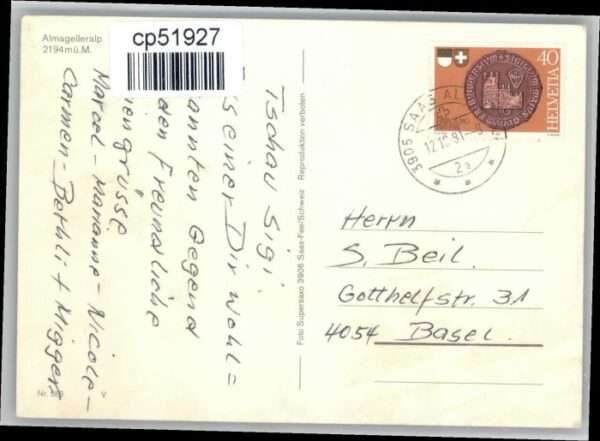 Almagelleralp
2194 m ü. M.
cp51927
Tschau Sigi.
s einer Dir wohl=
annten Gegend
den Freundliche
iengrüsse
Marcel - Marianne - Nicole -
Carmen - Bethli +
Nr. V
Foto Supersaxo 3906 Saas-Fee/Schweiz Reproduktion verboten
40
HELVETIA
3905 SAAS AL
12.10.81
2a
Herrn
S. Beil.
Gotthelfstr. 31
4054 Basel.